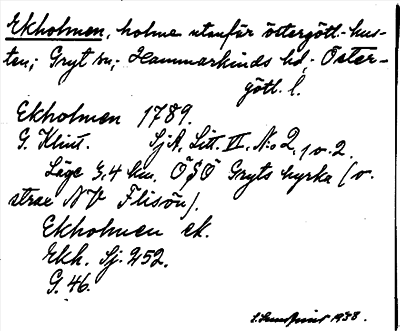 Ekholmen, holme utanför östergötl.-kus-
ten; Gryt sn; Hammarkinds hd; Öster-
götl. l.
Ekholmen 1789.
G. Klint. SjA, Litt. II, No 2, 1 o. 2.
Läge 3,4 km. ÖSÖ Gryts kyrka (v.
strax NV Flisön).
Ekholmen ek.
Ekh. Sj. 252.
G. 46.
1938.